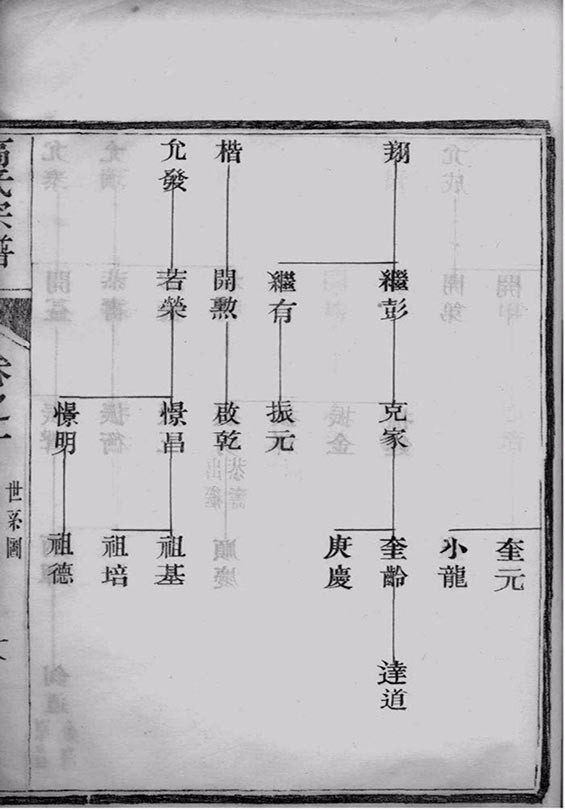 奎元
小龍
翔
繼彭
克家
奎齡
達道
庚慶
繼有
振元
楷
開勲
啟乾
允發
若榮
憬昌
祖基
祖培
憬明
祖德
氏宗譜
世系圖